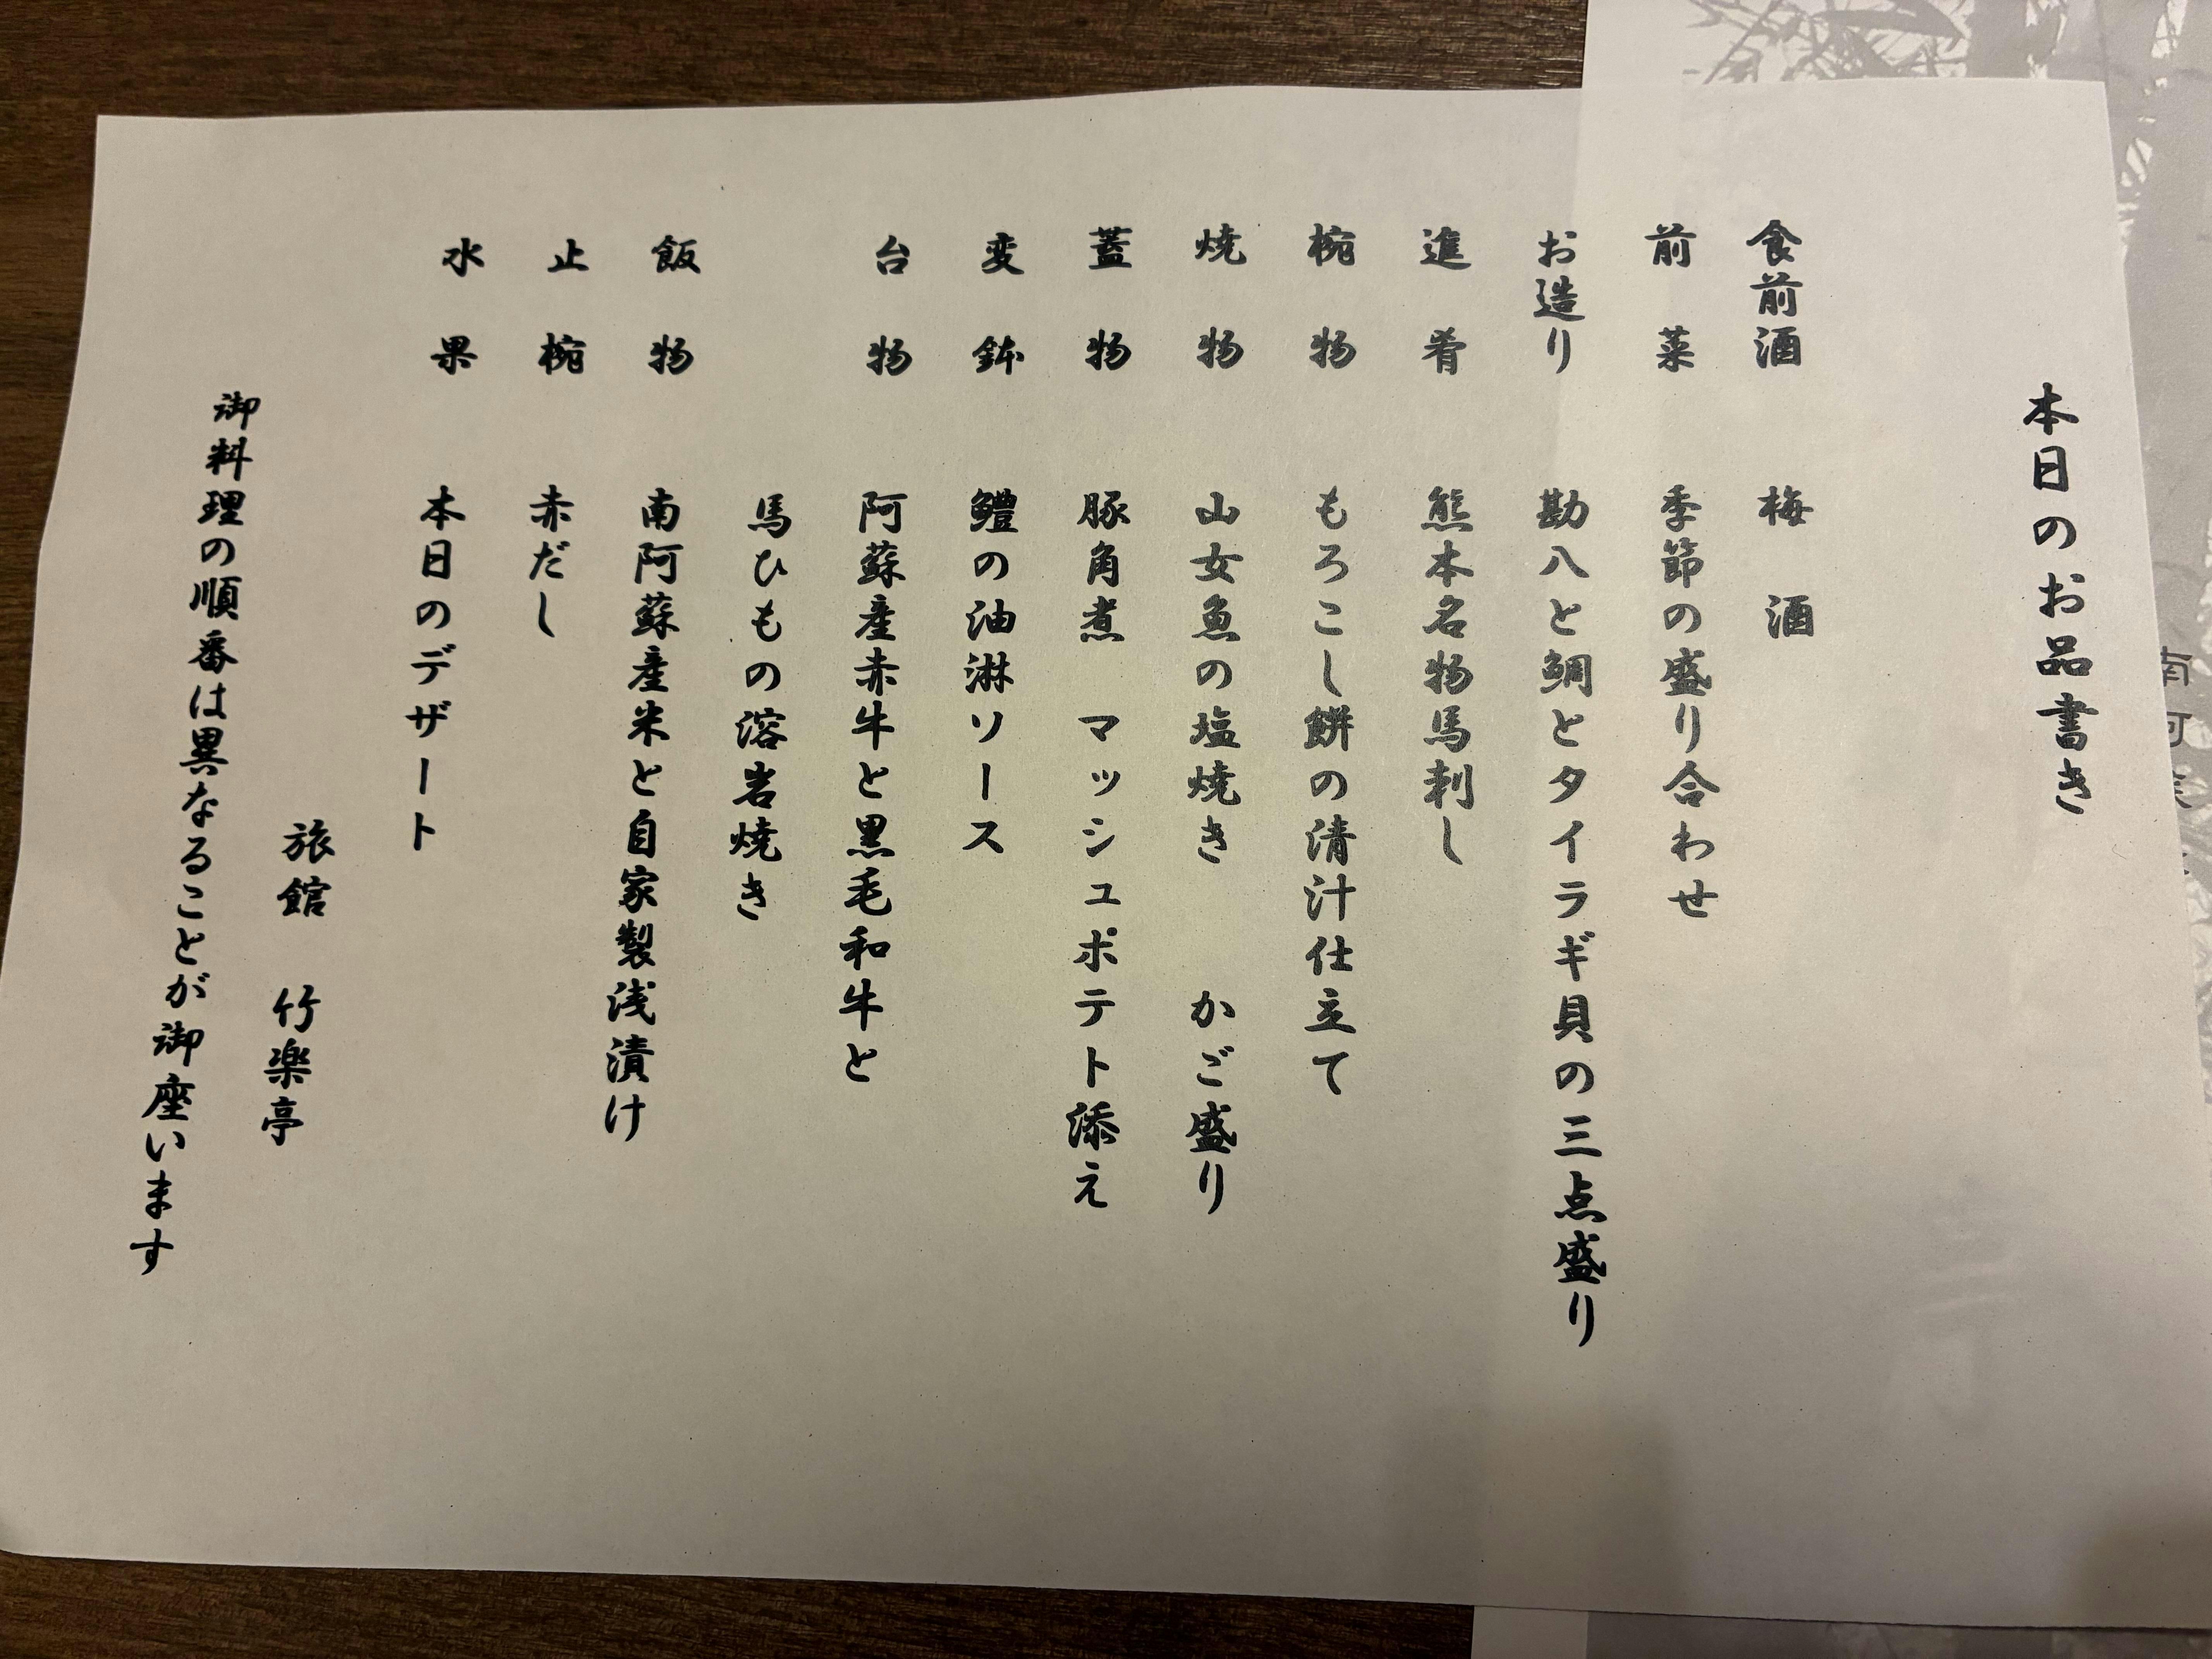 本日のお品書き
食前酒　梅酒
前菜　季節の盛り合わせ
お造り　勘八と鯛とタイラギ貝の三点盛り
進肴　熊本名物馬刺し
椀物　もろこし餅の清汁仕立て
焼物　山女魚の塩焼き　かご盛り
蓋物　豚角煮　マッシュポテト添え
変鉢　鱧の油淋ソース
台物　阿蘇産赤牛と黒毛和牛と
馬ひもの溶岩焼き
飯物　南阿蘇産米と自家製浅漬け
止椀　赤だし
水果　本日のデザート
旅館　竹楽亭
御料理の順番は異なることが御座います
南阿